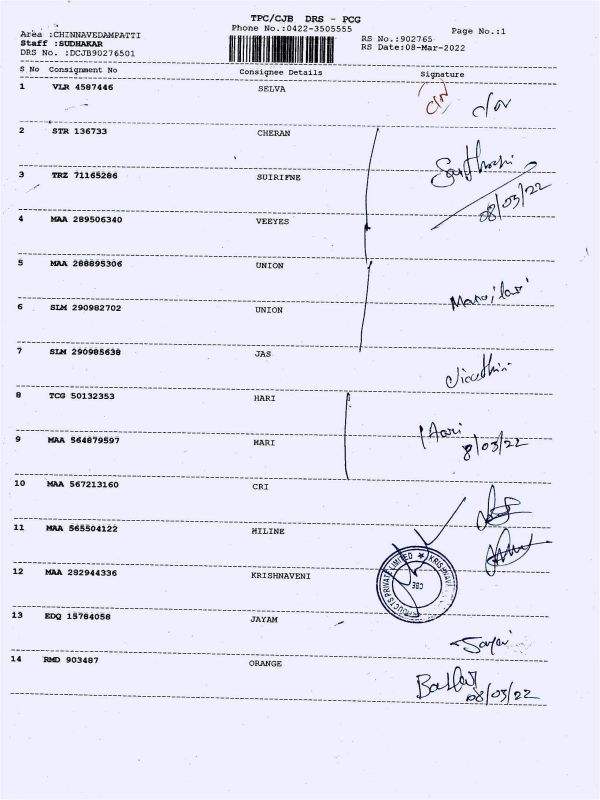 TPC/CJB DRS - PCG
Phone No.:0422-3505555
Page No.:1
Area :CHINNAVEDAMPATTI
Staff :SUDHAKAR
DRS No. :DCJB90276501
RS No.:902765
RS Date:08-Mar-2022
S No Consignment No Consignee Details Signature
1 VLR 4587446 SELVA
2 STR 136733 CHERAN
3 TRZ 71165286 SUIRIFNE
08/03/22
4 MAA 289506340 VEEYES
5 MAA 288895306 UNION
6 SLM 290982702 UNION
7 SLM 290985638 JAS
8 TCG 50132353 HARI
Hari
8/03/22
9 MAA 564879597 HARI
10 MAA 567213160 CRI
11 MAA 565504122 HILINE
12 MAA 282944336 KRISHNAVENI
PRIVATE LIMITED ★ KRISHNAVENI
CBE
13 EDQ 15784058 JAYAM
14 RMD 903487 ORANGE
08/03/22